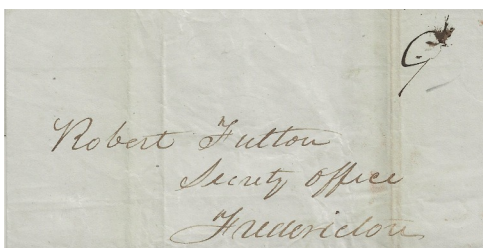 Robert Fulton
Secrety Office
Fredericton